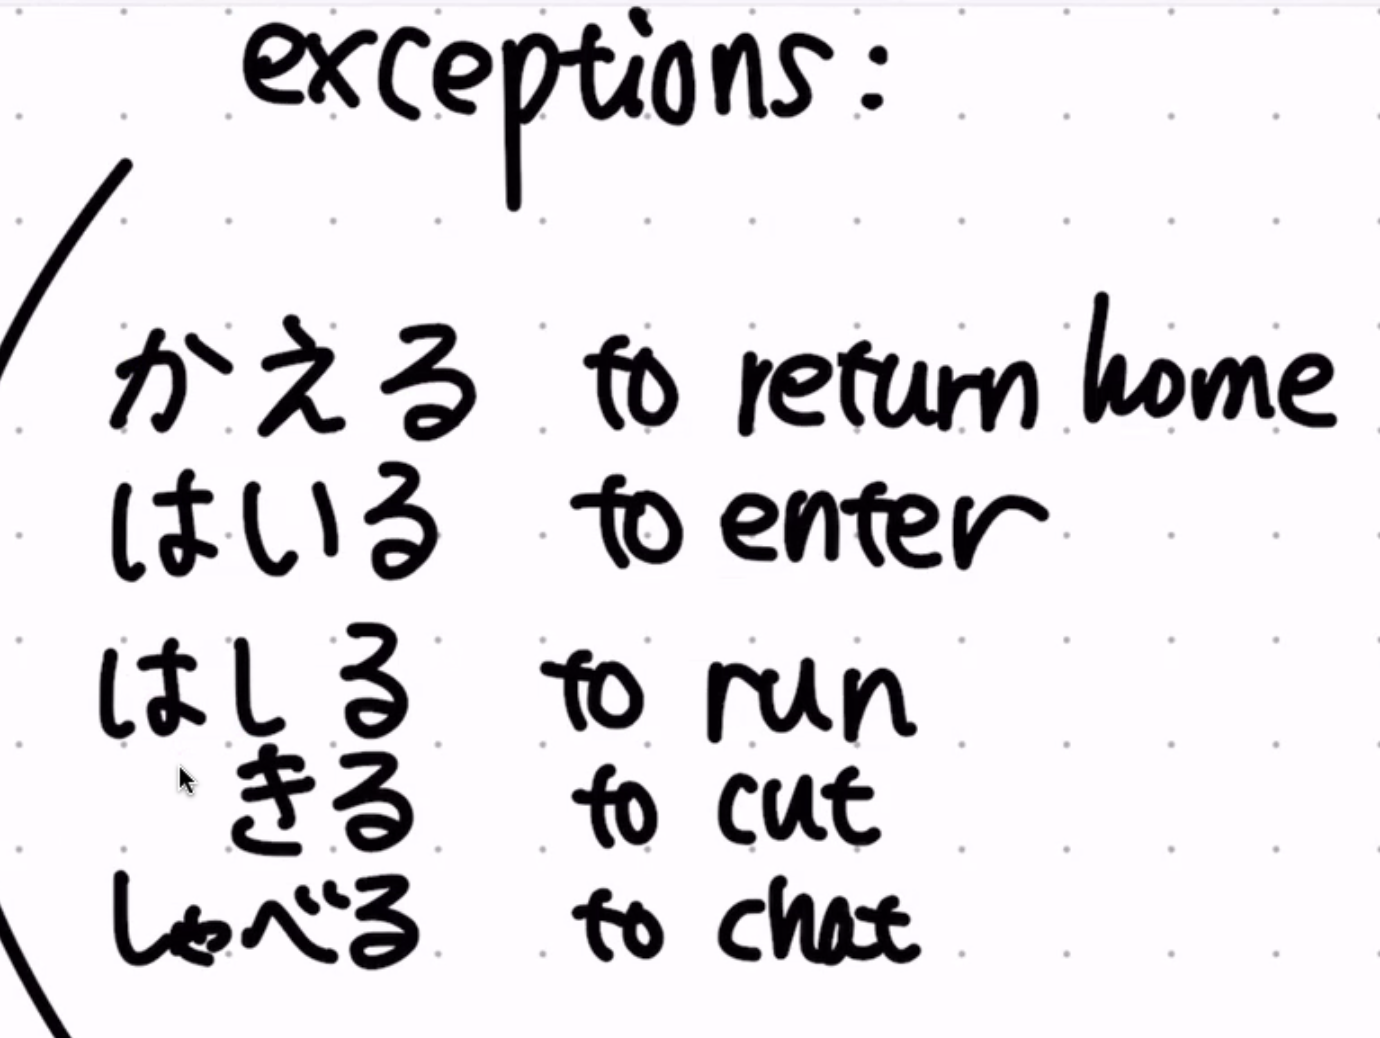 exceptions:
かえる to return home
はいる to enter
はしる to run
きる to cut
しゃべる to chat